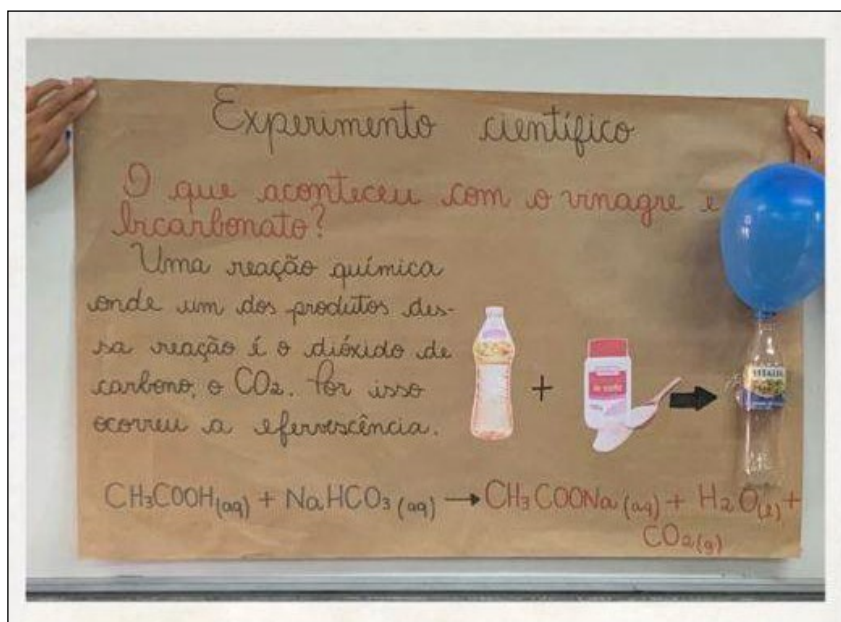 Experimento científico
O que aconteceu com o vinagre e
bicarbonato?
Uma reação química
onde um dos produtos des-
sa reação é o dióxido de
carbono, o CO₂. Por isso
ocorreu a efervescência.
+
CH₃COOH(aq) + NaHCO₃(aq) → CH₃COONa(aq) + H₂O(l) +
CO₂(g)